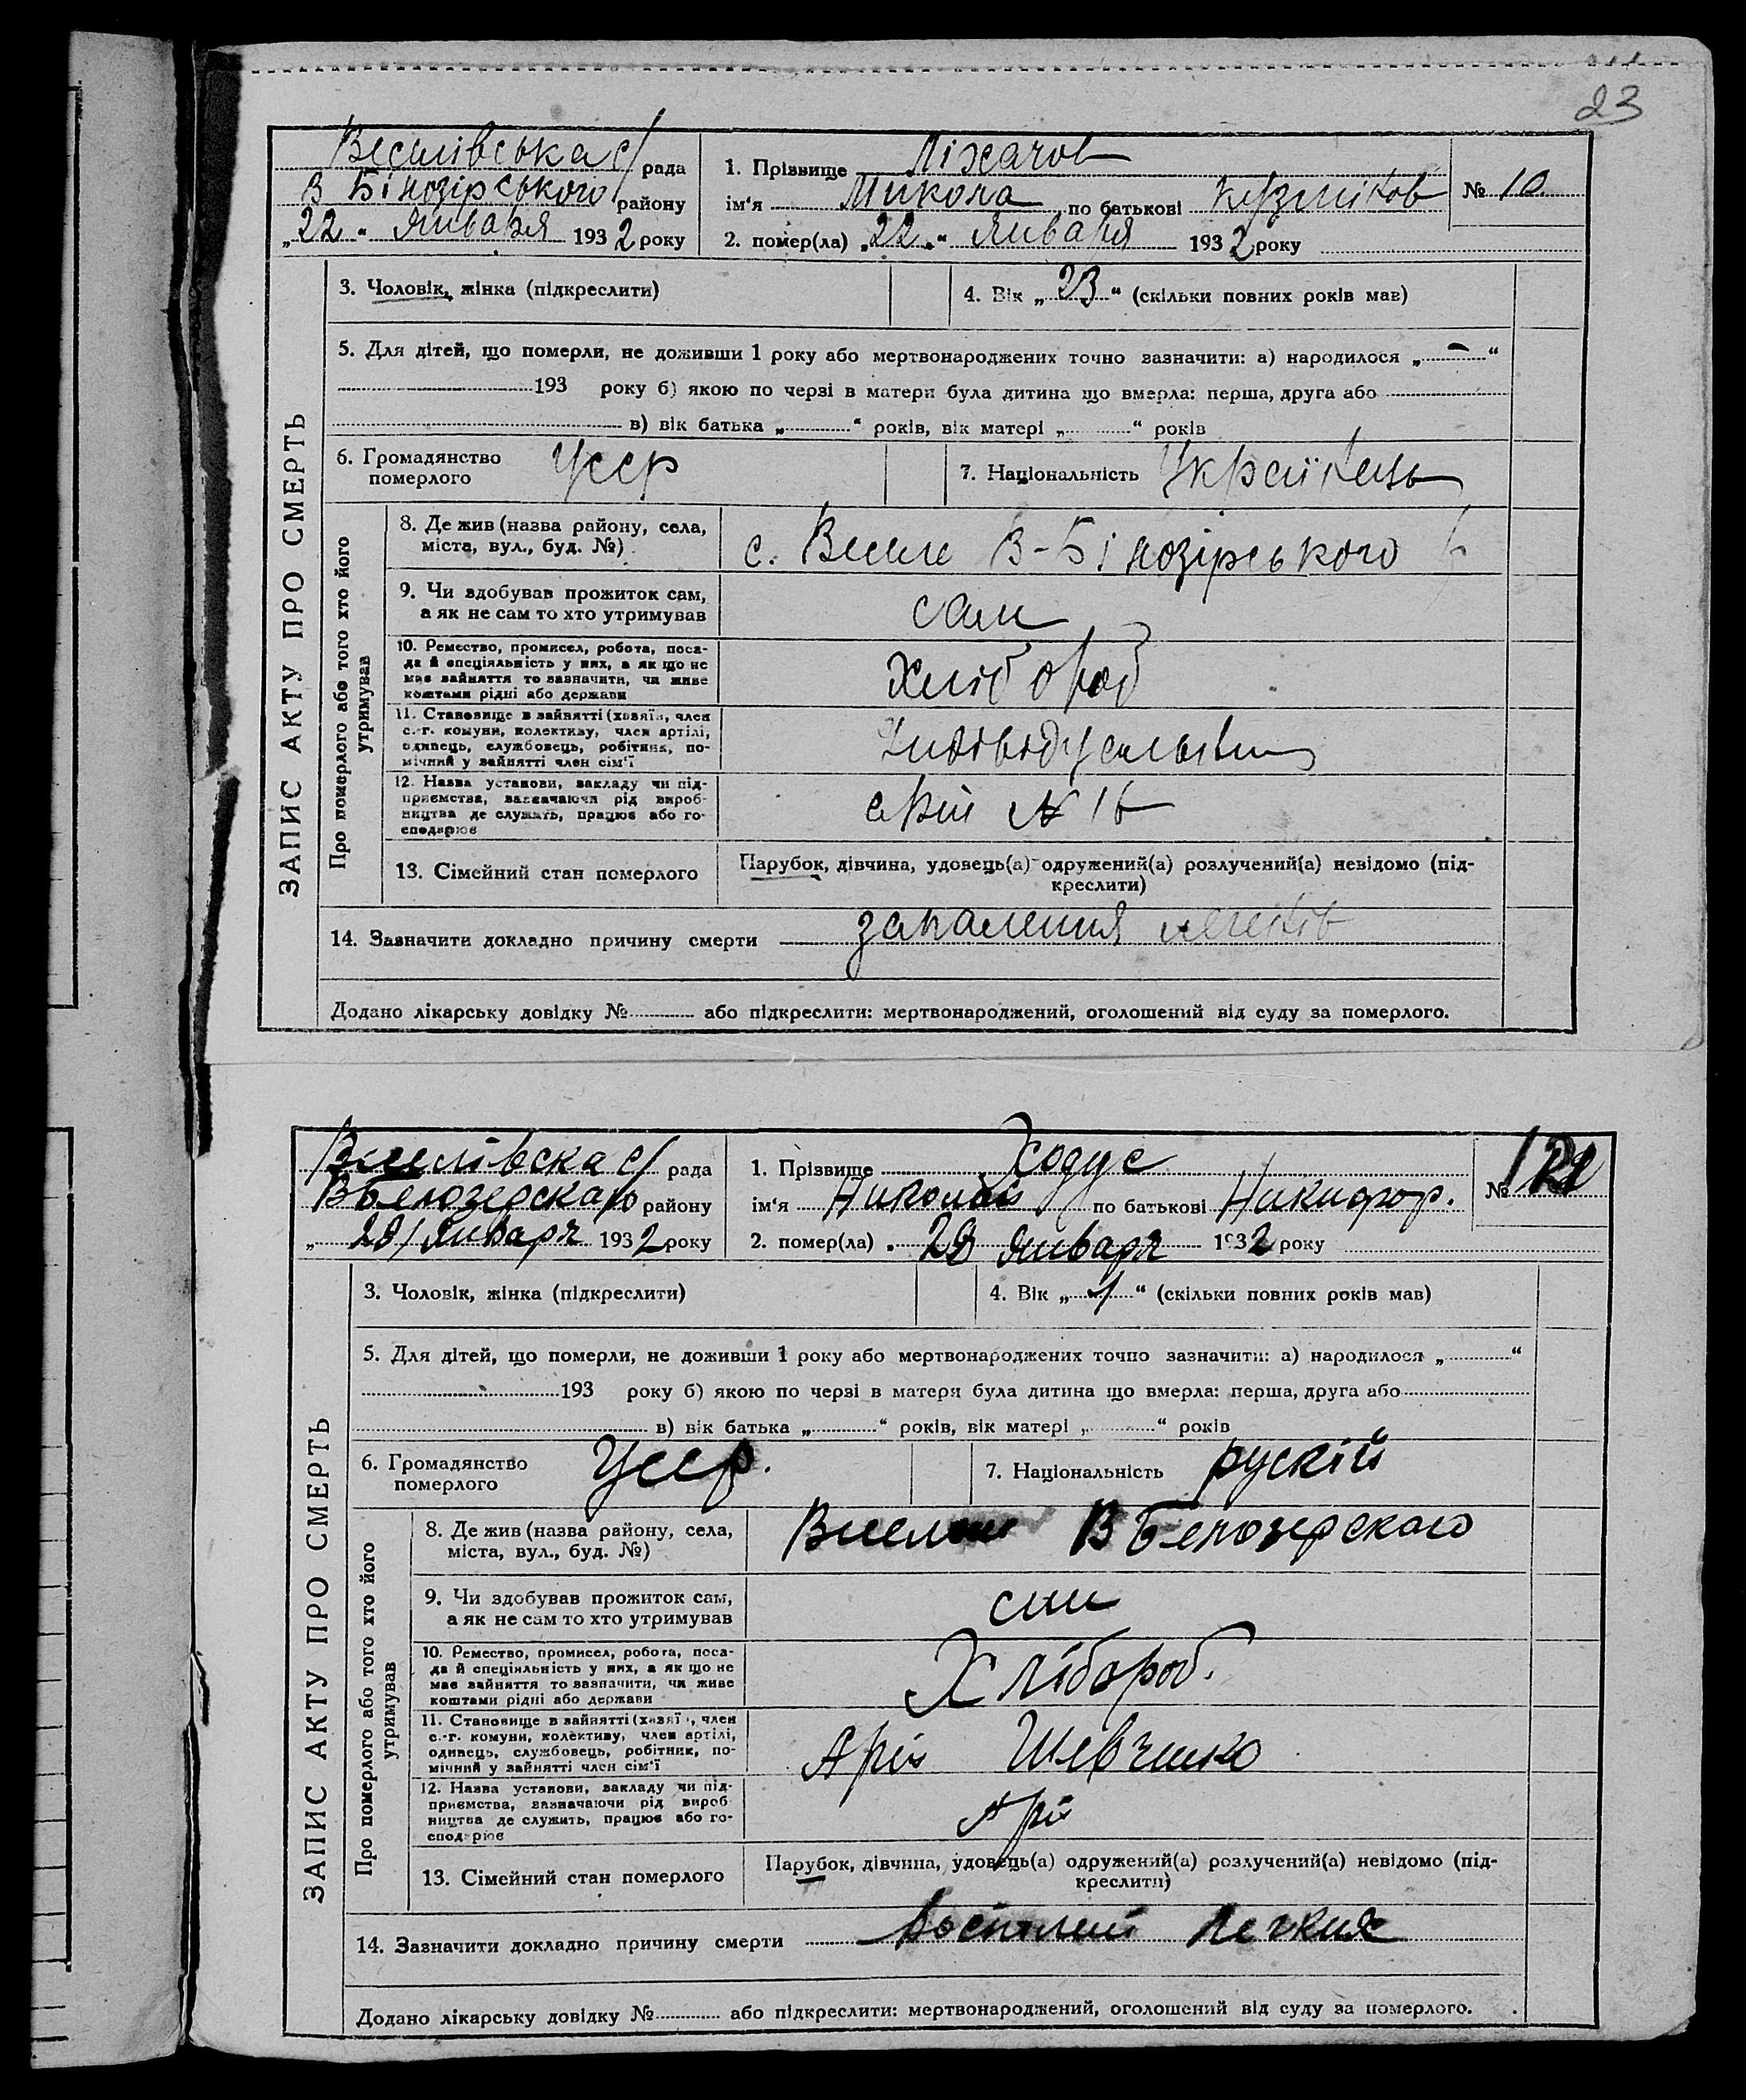 23
Веселівська с/рада
В Білозірського району
„22“ Января 1932 року
1. Прізвище Ліхачов
ім'я Микола по батькові Кузьміков
№ 10
2. помер(ла) „22“ Января 1932 року
ЗАПИС АКТУ ПРО СМЕРТЬ
3. Чоловік, жінка (підкреслити)
4. Вік „23“ (скільки повних років мав)
5. Для дітей, що померли, не доживши 1 року або мертвонароджених точно зазначити: а) народилося „ – “
193 року б) якою по черзі в матери була дитина що вмерла: перша, друга або
в) вік батька „ “ років, вік матері „ “ років
6. Громадянство
померлого
Усср
7. Національність Українець
Про померлого або того хто його
утримував
8. Де жив (назва району, села,
міста, вул., буд. №)
с. Веселе В-Білозірського
9. Чи здобував прожиток сам,
а як не сам то хто утримував
сам
10. Ремество, промисел, робота, поса-
да й специяльність у них, а як що не
має зайняття то зазначити, чи живе
коштами рідні або держави
Хлібороб
11. Становище в зайнятті (хазяїн, член
с.-г. комуни, колективу, член артілі,
одинець, службовець, робітник, по-
мічний у зайнятті член сім'ї
12. Назва установи, закладу чи під-
приємства, зазначаючи рід вироб-
ництва де служить, працює або го-
сподарює
№ 16
13. Сімейний стан померлого
Парубок, дівчина, удовець(а) одружений(а) розлучений(а) невідомо (під-
креслити)
14. Зазначити докладно причину смерти запалення легенів
Додано лікарську довідку № або підкреслити: мертвонароджений, оголошений від суду за померлого.
Веселівска с/рада
ВБелозерскаго району
„ 28/Января 1932 року
1. Прізвище Ходус
ім'я Николай по батькові Никифор.
№ 12
2. помер(ла) „ 28 Января 1932 року
ЗАПИС АКТУ ПРО СМЕРТЬ
3. Чоловік, жінка (підкреслити)
4. Вік „1“ (скільки повних років мав)
5. Для дітей, що померли, не доживши 1 року або мертвонароджених точно зазначити: а) народилося „ “
193 року б) якою по черзі в матеря була дитина що вмерла: перша, друга або
в) вік батька „ “ років, вік матері „ “ років
6. Громадянство
померлого
Усср.
7. Національність рускій
Про померлого або того хто його
утримував
8. Де жив (назва району, села,
міста, вул., буд. №)
ВБелозерскаго
9. Чи здобував прожиток сам,
а як не сам то хто утримував
10. Ремество, промисел, робота, поса-
да й специяльність у них, а як що не
має зайняття то зазначити, чи живе
коштами рідні або держави
Хлібороб.
11. Становище в зайнятті (хазяїн, член
с.-г. комуни, колективу, член артілі,
одинець, службовець, робітник, по-
мічний у зайнятті член сім'ї
Аріл Шевченко
12. Назва установи, закладу чи під-
приємства, зазначаючи рід вироб-
ництва де служить, працює або го-
сподарює
13. Сімейний стан померлого
Парубок, дівчина, удовець(а) одружений(а) розлучений(а) невідомо (під-
креслити)
14. Зазначити докладно причину смерти Воспалені Легких
Додано лікарську довідку № або підкреслити: мертвонароджений, оголошений від суду за померлого.